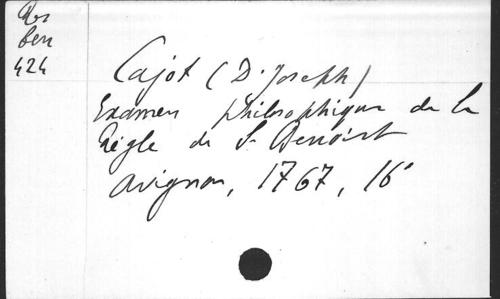 Res
ben
424
Cajot (D. Joseph)
Examen philosophique de la
Règle de St Benoist
Avignon, 1767, 16°